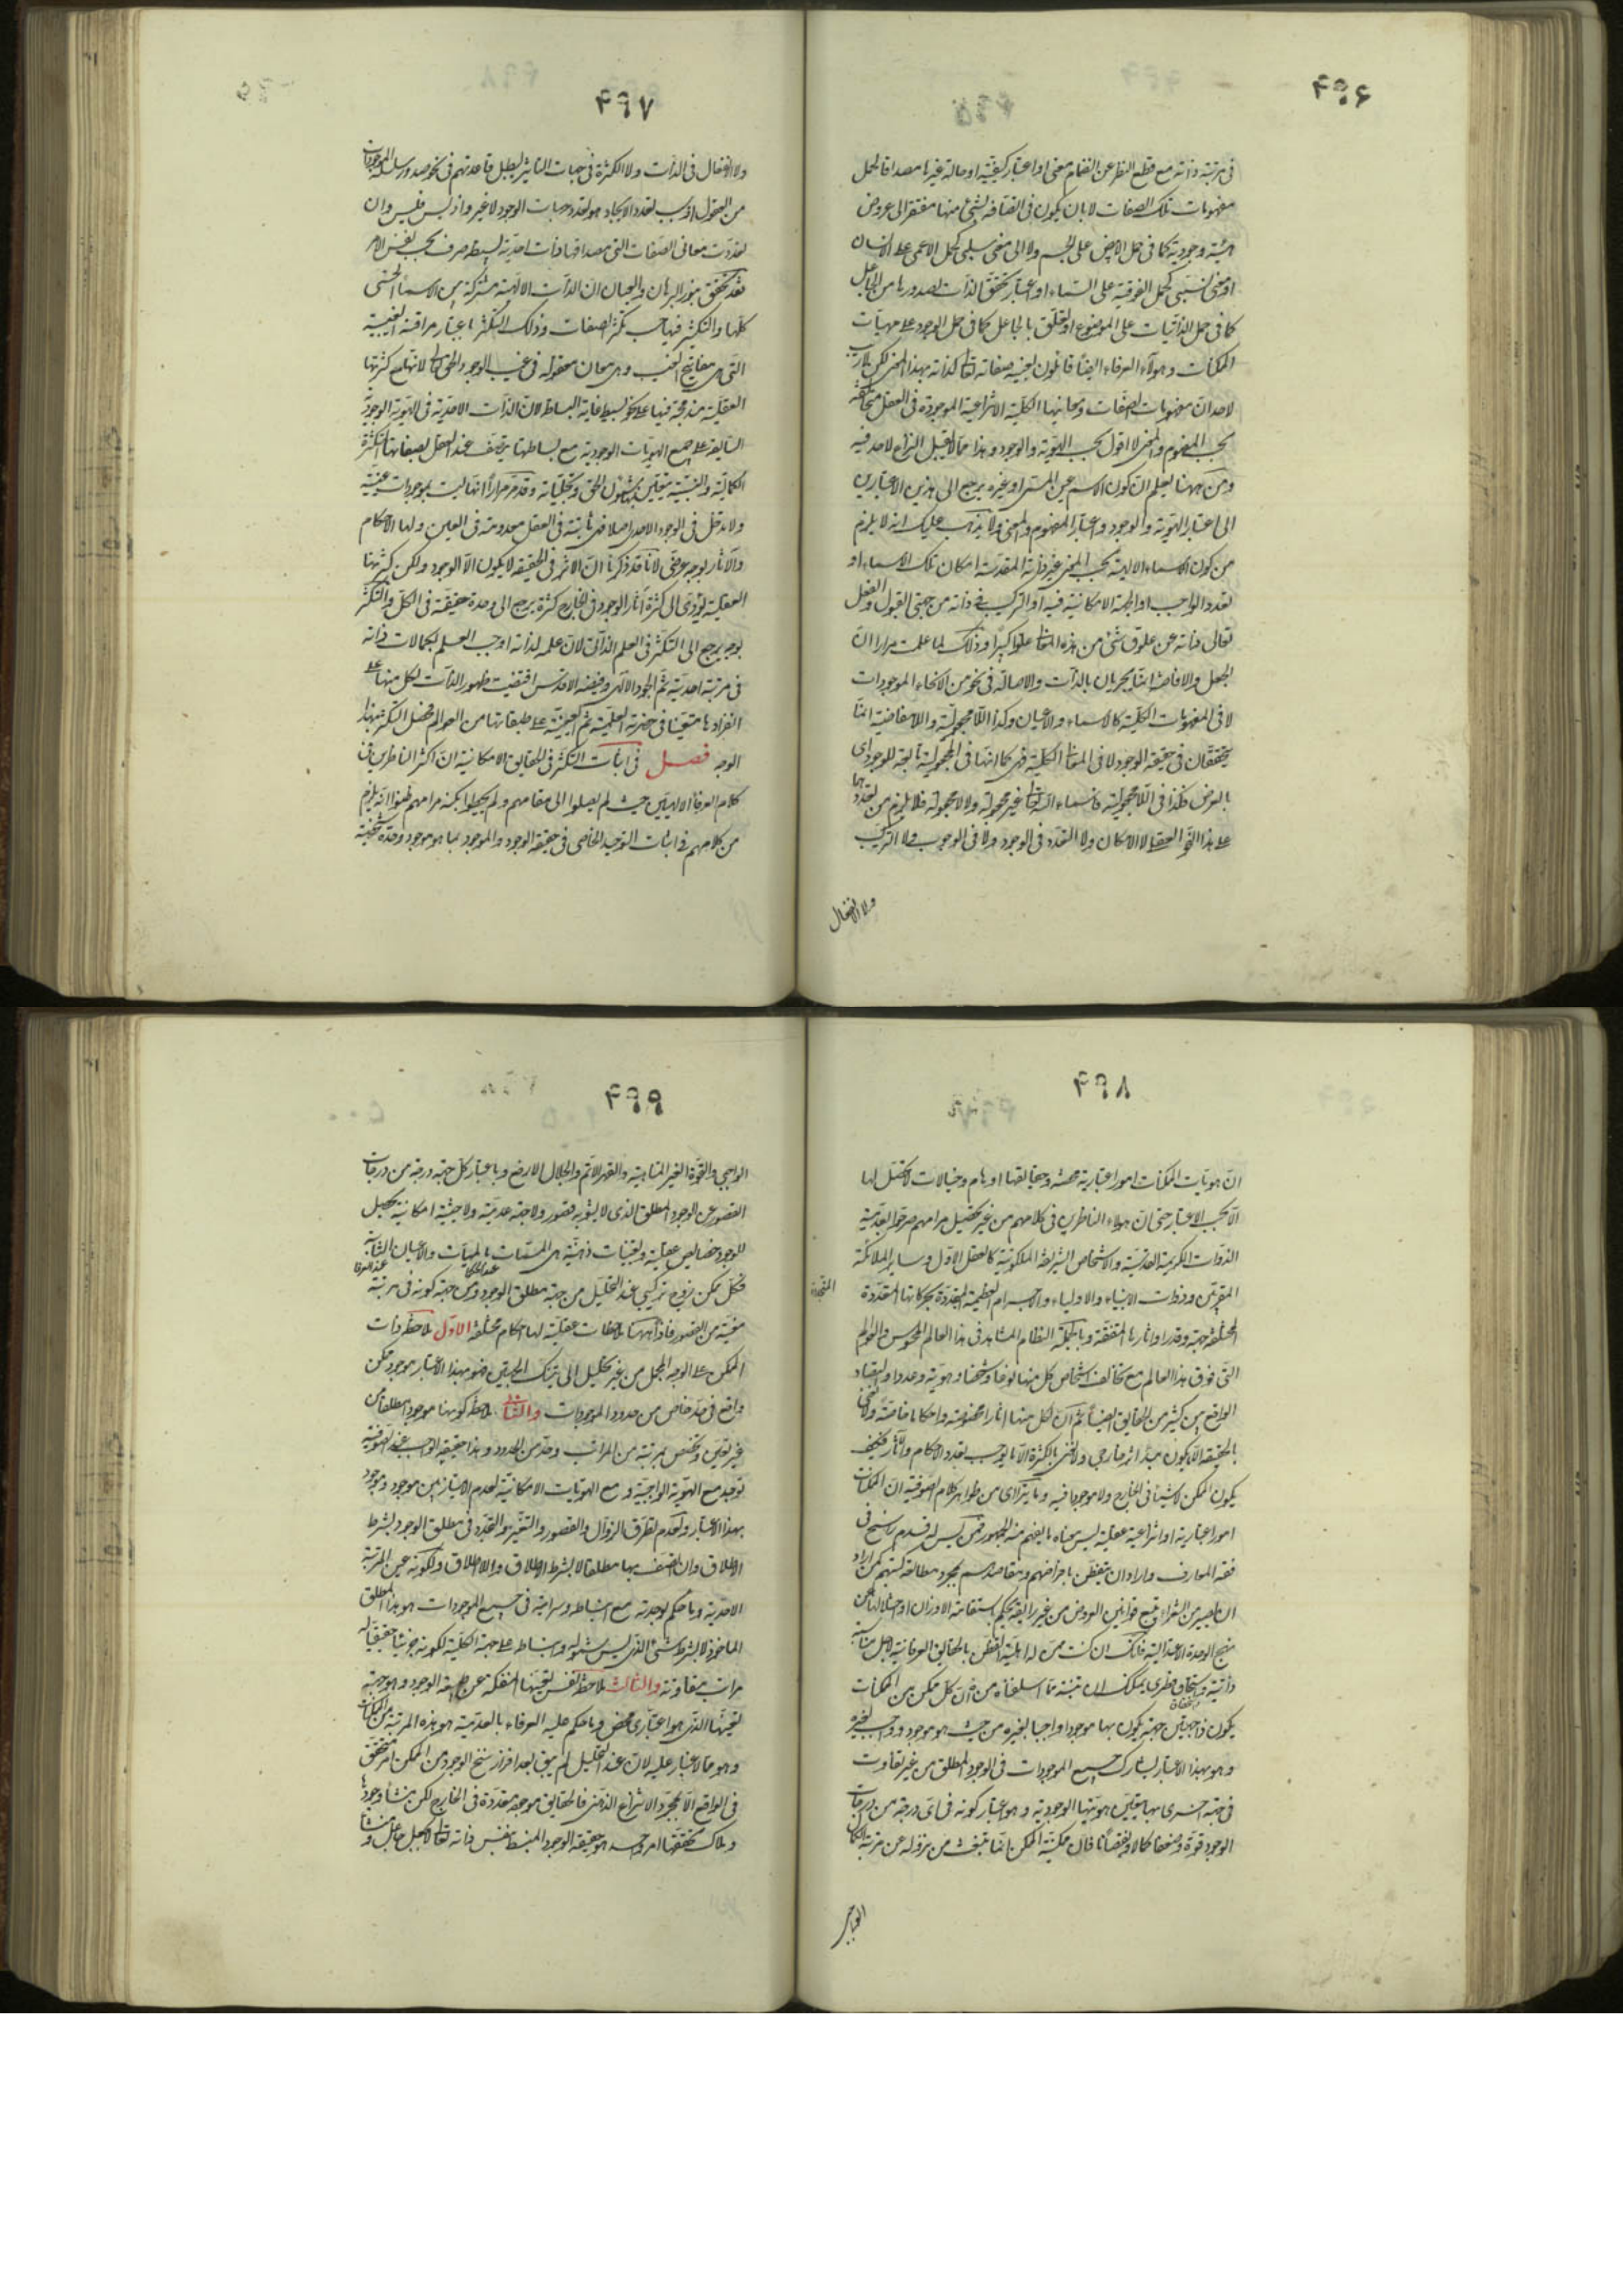 ۴۹۶
فى مرتبة ذاته مع قطع النظر عن انضمام معنى او اعتبار كيفية او حالة غيرها مصداقا لحمل
مفهومات تلك الصفات لا بان يكون فى اتصافه بشئ منها مفتقر الى عروض
هيئة وجودية كما فى حمل الابيض على الجسم ولا الى معنى سلبى كحمل الاعمى على الانسان
او معنى نسبى كحمل الفوقية على السماء او اعتبار تحقق الذات لصدورها من الجاعل
كما فى حمل الذاتيات على الموضوع او تعلق بالجاعل كما فى حمل الوجود على مهيات
الممكنات وهولاء العرفاء ايضا قائلون بعينية صفاته تعالى لذاته بهذا المعنى لكن لا ريب
لاحد ان مفهومات الصفات ومعانيها الكلية الانتزاعية الموجودة فى العقل متخالفة
بحسب المفهوم والمعنى لا اقول بحسب الهوية والوجود وهذا مما لا يقبل النزاع لاحد فيه
ومن ههنا يعلم ان كون الاسم عين المسمى او غيره يرجع الى هذين الاعتبارين
الى اعتبار الهوية والوجود واعتبار المفهوم والمعنى ولا يذهب عليك انه لا يلزم
من كون الاسماء الالهية بحسب المعنى غير ذاته المقدسة امكان تلك الاسماء او
تعدد الواجب او الجهة الامكانية فيه او التركيب فى ذاته من جهتى القبول والفعل
تعالى ذاته عن علوق شئ من هذه النقائص علوا كبيرا وذلك لما علمت مرارا ان
الجعل والافاضة انما يجريان بالذات والاصالة فى نحو من الانحاء الموجودات
لا فى المفهومات الكلية كالاسماء والاعيان وكذا اللامجعولية واللامفاضية انما
يتحققان فى حقيقة الوجود لا فى المعانى الكلية فهى كما انها فى المجعولية تابعة للوجود اى
بالعرض فكذا فى اللامجعولية فاسماء الله تعالى غير مجعولة ولا لا مجعولة فلا يلزم من تعددها
على هذا النحو العقلى لا الامكان ولا التعدد فى الوجود ولا فى الوجوب ولا التركيب
ولا الانفعال
۴۹۷
ولا انفعال فى الذات ولا الكثرة فى جهات التاثير ليبطل قاعدتهم فى نحو صدور سلسلة الموجودات
من العقول اذ سبب تعدد الايجاد هو تعدد حيثيات الوجود لا غير واذ ليس فليس وان
تعددت معانى الصفات التى مصداقها ذات احدية بسيطة صرف بحسب نفس الامر
فقد تحقق بنور البرهان والعيان ان الذات الالهية مشتركة بين الاسماء الحسنى
كلها والتكثير فيها بحسب تكثر الصفات وذلك التكثر باعتبار مراقبه الغيبية
التى هى مفاتيح الغيب وهى معان معقولة فى غيب الوجود الحق تعالى لانها مع كثرتها
العقلية مندمجة فيها على نحو بسيط غاية البساطة لان الذات الاحدية فى الهوية الوجودية
السابقة على جميع الهويات الوجودية مع بساطتها يتصف عند العقل بصفاتها المتكثرة
الكمالية والنسبية يتعين بها شئون الحق وتجلياته وقد مر مرارا انها ليست بموجودات عينية
ولا تدخل فى الوجود الاحدى اصلا فهى ثابتة فى العقل معدومة فى العين ولها الاحكام
والآثار بوجه عرضى لانا قد ذكرنا ان الاثر فى الحقيقة لا يكون الا الوجود ولكن كثرتها
العقلية يؤدى الى كثرة آثار الوجود فى الخارج كثرة يرجع الى وحدة حقيقية فى الكل والتكثر
بوجه يرجع الى التكثر فى العلم الذاتى لان علمه لذاته اوجب العلم بكمالات ذاته
فى مرتبة احديته ثم الجود الالهى وفيضه الاقدس اقتضيت ظهور الذات لكل منها على
انفرادها متعينا فى حضرته العلمية ثم العينية على طبقاتها من العوالم فحصل التكثر بهذا
الوجه فصل فى اثبات التكثر فى الحقايق الامكانية ان اكثر الناظرين فى
كلام العرفاء الالهيين حيث لم يصلوا الى مقامهم ولم يحيطوا بكنه مرامهم ظنوا انه يلزم
من كلامهم فى اثبات التوحيد الخاصى فى حقيقة الوجود والموجود بما هو موجود وحدة شخصية
۴۹۸
ان هويات الممكنات امور اعتبارية محضة وحقايقها اوهام وخيالات لا تحصل لها
الا بحسب الاعتبار حتى ان هولاء الناظرين فى كلامهم من غير تحصيل مرامهم صرحوا بعدمية
الذوات الكريمة القدسية والاشخاص الشريفة الملكوتية كالعقل الاول وساير الملائكة
المقربين وذوات الانبياء والاولياء والاجرام العظيمة المتعددة بحركاتها المتعددة
المختلفة جهة وقدرا وآثارها المتفننة وبالجملة النظام المشاهد فى هذا العالم المحسوس والعوالم
التى فوق هذا العالم مع تخالف اشخاص كل منها نوعا وتشخصا وهوية وعددا والتضاد
الواقع بين كثير من الحقايق ايضا ثم ان لكل منها آثارا مخصوصة واحكاما خاصة ولا نعنى
بالحقيقة الا ما يكون مبدأ اثر خارجى ولا نعنى بالكثرة الا ما يوجب تعدد الاحكام والآثار فكيف
يكون الممكن لا شيئا فى الخارج ولا موجودا فيه وما يتراءى من ظواهر كلام الصوفية ان الممكنات
امور اعتبارية او انتزاعية عقلية ليس معناه ما يفهم منه الجمهور ممن ليس له قدم راسخ فى
فقه المعارف واراد ان يتفطن باغراضهم ومقاصدهم بمجرد مطالعة كتبهم كمن اراد
ان يصير من الشعراء بتتبع قوانين العروض من غير سليقة يحكم باستقامة الاوزان او اختلالها عن
نهج الوحدة الاعتدالية فانك ان كنت ممن له اهلية التفطن بالحقايق العرفانية لاجل مناسبة
ذاتية واستحقاق فطرى يمكنك ان تتنبه مما اسلفناه من ان كل ممكن من الممكنات
يكون ذا جهتين جهة يكون بها موجودا واجبا لغيره من حيث هو موجود وواجب لغيره
وهو بهذا الاعتبار يشارك جميع الموجودات فى الوجود المطلق من غير تفاوت
وجهة اخرى بها يتعين هويتها الوجودية وهو اعتبار كونه فى اى درجة من درجات
الوجود قوة وضعفا كمالا ونقصانا فان ممكنية الممكن انما ينبعث من نزوله عن مرتبة الكمال
الواجبى
۴۹۹
الواجبى والقوة الغير المتناهية والقهر الاتم والجلال الارفع وباعتبار كل جهة درجة من درجات
القصور عن الوجود المطلق الذى لا يشوبه قصور ولا جهة عدمية ولا حيثية امكانية يحصل
للوجود خصايص عقلية وتعينات ذهنية هى المسميات بالمهيات والاعيان الثابتة
عند الحكماء عند العرفاء
فكل ممكن زوج تركيبى عند التحليل من جهة مطلق الوجود ومن جهة كونه فى مرتبة
معينة من القصور فاذا ههنا ملاحظات عقلية لها احكام مختلفة الاول ملاحظة ذات
الممكن على الوجه المجمل من غير تحليل الى تينك الجهتين فهو بهذا الاعتبار موجود ممكن
واقع فى حد خاص من حدود الموجودات والثانى ملاحظة كونها موجودا مطلقا من
غير تعين وتخصص بمرتبة من المراتب وحد من الحدود وهذا حقيقة الواجب عند الصوفية
توجد مع الهوية الواجبية ومع الهويات الامكانية لعدم الامتياز بين موجود وموجود
بهذا الاعتبار ولعدم تطرق الزوال والقصور والتغير والتجدد فى مطلق الوجود بشرط
الاطلاق وان اتصف بها مطلقا لا بشرط الاطلاق واللااطلاق ولكونه عين المرتبة
الاحدية وما حكم بوحدته مع انبساطه وسرايته فى جميع الموجودات هو هذا المطلق
الماخوذ لا بشرط شئ الذى ليس شموله وانبساطه على جهة الكلية لكونه جزئيا حقيقيا له
مراتب متفاوتة والثالث ملاحظة نفس تعينها المنفكة عن طبيعة الوجود وهو جهة
تعينها الذى هو اعتبارى محض وما حكم عليه العرفاء بالعدمية هو هذه المرتبة من الممكنات
وهو مما لا غبار عليه لان عند التحليل لم يبق بعد افراز سنخ الوجود من الممكن امر متحقق
فى الواقع الا بمجرد الانتزاع الذهنى فالحقايق موجودة متعددة فى الخارج لكن منشأ وجودها
وملاك تحققها امر واحد هو حقيقة الوجود المنبسط بنفس ذاته تعالى لا بجعل جاعل ومنشأ